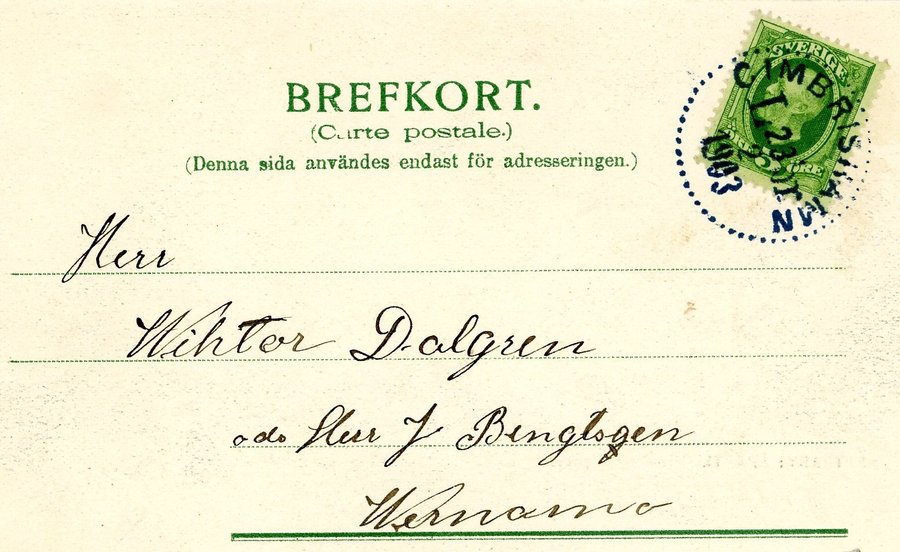 BREFKORT.
(Carte postale.)
(Denna sida användes endast för adresseringen.)
SVERIGE
ÖRE
CIMBRISHAMN
1903
Herr
Wihtor Dalgren
ado Herr J Bengtsgen
Wernamo